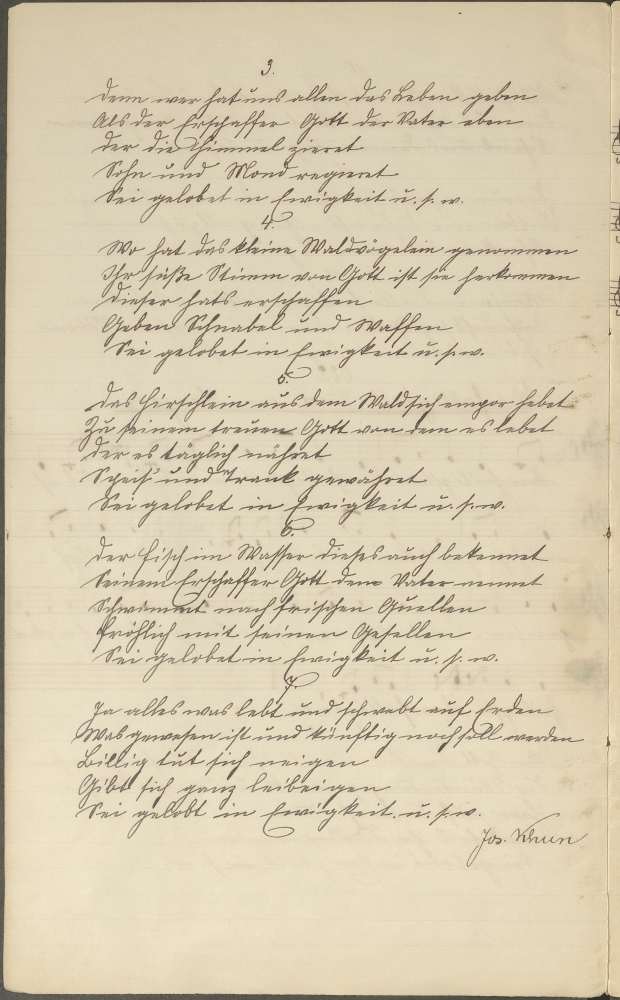 3.
Denn wer hat uns allen das Leben geben
Als der Erschaffer Gott der Vater eben
Der die Himmel zieret
Sohn und Mond regieret
Sei gelobet in Ewigkeit u. s. w.
4.
Wo hat das kleine Waldvögelein genommen
Ihr süße Stimm von Gott ist sie herkommen
Dieser hats erschaffen
Geben Schnabel und Waffen
Sei gelobet in Ewigkeit u. s. w.
5.
Das Hirschlein aus dem Wald sich empor hebet
Zu seinem treuen Gott von dem es lebet
Der es täglich nähret
Speis' und Trank gewähret
Sei gelobet in Ewigkeit u. s. w.
6.
Der Fisch im Wasser dieses auch bekennet
Seinem Erschaffer Gott dem Vater nennet
Schwimmt nach frischen Quellen
Fröhlich mit seinen Gesellen
Sei gelobet in Ewigkeit u. s. w.
7.
Ja alles was lebt und schwebt auf Erden
Was gewesen ist und künftig noch soll werden
Billig tut sich neigen
Gibt sich ganz leibeigen
Sei gelobt in Ewigkeit. u. s. w.
Jos.